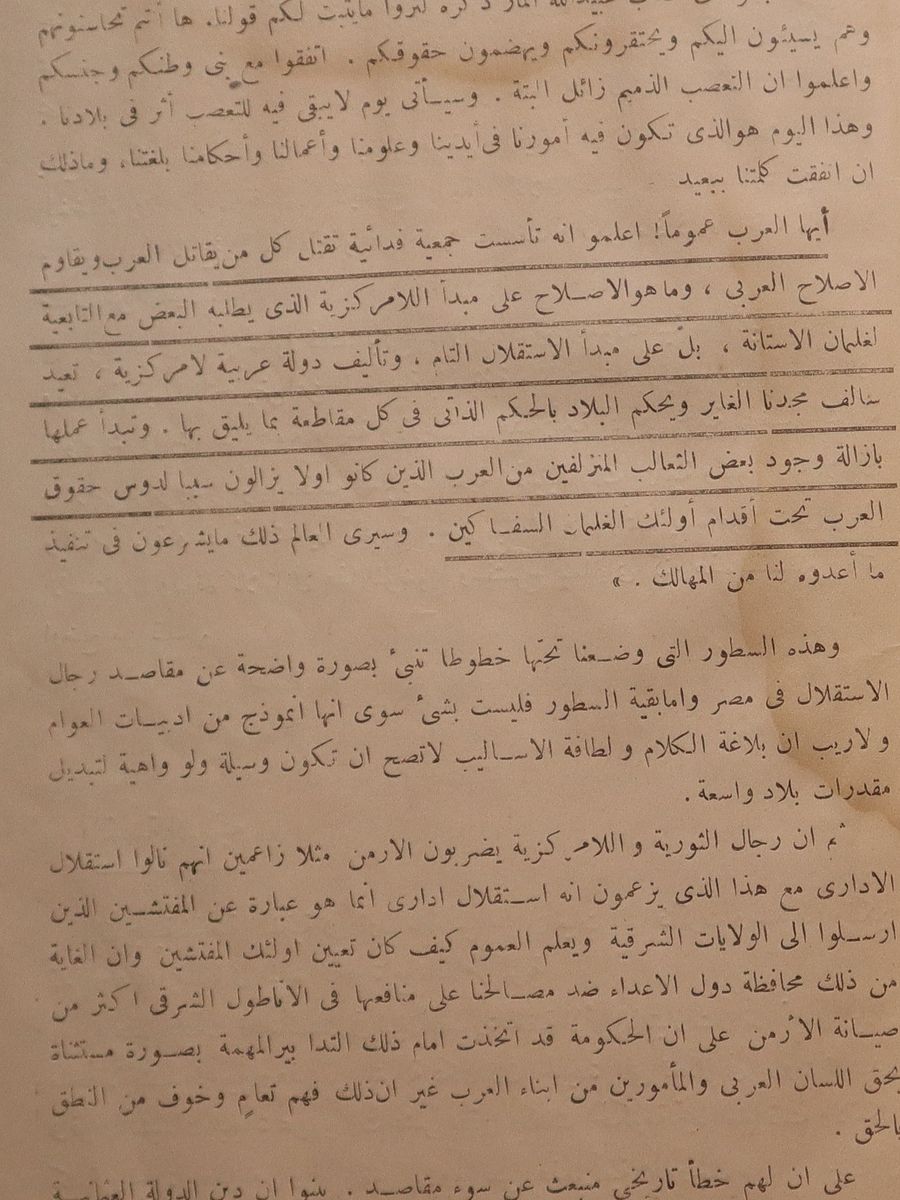 عبيدالله المار ذكره لتروا مايثبت لكم قولنا. ها أنتم تحاسنونهم
وهم يسيئون اليكم ويحتقرونكم ويهضمون حقوقكم . اتفقوا مع بنى وطنكم وجنسكم
واعلموا ان التعصب الذميم زائل البتة . وسيـأتى يوم لايبقى فيه للتعصب أثر فى بلادنا .
وهذا اليوم هوالذى تكون فيه أمورنا فى أيدينا وعلومنا وأعمالنا وأحكامنا بلغتنا، وماذلك
ان اتفقت كلمتنا ببعيد
أيها العرب عموماً! اعلمو انه تأسست جمعية فدائية تقتل كل من يقاتل العرب ويقاوم
الاصلاح العربى ، وماهوالاصـلاح على مبدأ اللامركزية الذى يطلبه البعض مع التابعية
لغلمان الاستانة ، بلّ على مبدأ الاستقلال التام . وتأليف دولة عربية لامركزية ، تعيد
سالف مجدنا الغاير ويحكم البلاد بالحكم الذاتى فى كل مقاطعة بما يليق بها . وتبدأ عملها
بازالة وجود بعض الثعالب المتزلفين من العرب الذين كانو اولا يزالون سببا لدوس حقوق
العرب تحت أقدام أولئك الغلمان السفـاكين . وسيرى العالم ذلك مايشرعون فى تنفيذ
ما أعدوه لنا من المهالك . »
وهذه السطور التى وضـعنا تحتها خطوطا تنبىٔ بصورة واضحة عن مقاصـد رجال
الاستقلال فى مصر وامابقية السطور فليست بشىٔ سوى انها انموذج من ادبيـات العوام
ولاريب ان بلاغة الكلام ولطافة الاسـاليب لاتصح ان تكون وسيلة ولو واهية لتبديل
مقدرات بلاد واسعة .
ثم ان رجال الثورية واللامركزية يضربون الارمن مثلا زاعمين انهم نالوا استقلال
الادارى مع هذا الذى يزعمون انه اسـتقلال ادارى انما هو عبارة عن المفتشـين الذين
ارسـلوا الى الولايات الشرقية ويعلم العموم كيف كان تعيين اولئك المفتشين وان الغاية
من ذلك محافظة دول الاعداء ضد مصـالحنا على منافعها فى الاناطول الشرقى اكثر من
صيـانة الأرمن على ان الحكومة قد اتخذت امام ذلك التدا بيرالمهمة بصـورة مستثناة
بحق اللسان العربى والمأمورين من ابناء العرب غير ان ذلك فهم تعامٍ وخوف من النطق
بالحق .
على ان لهم خطأ تاريخى منبعث عن سوء مقاصـد . بنوا ان دين الدولة العثمانيـة